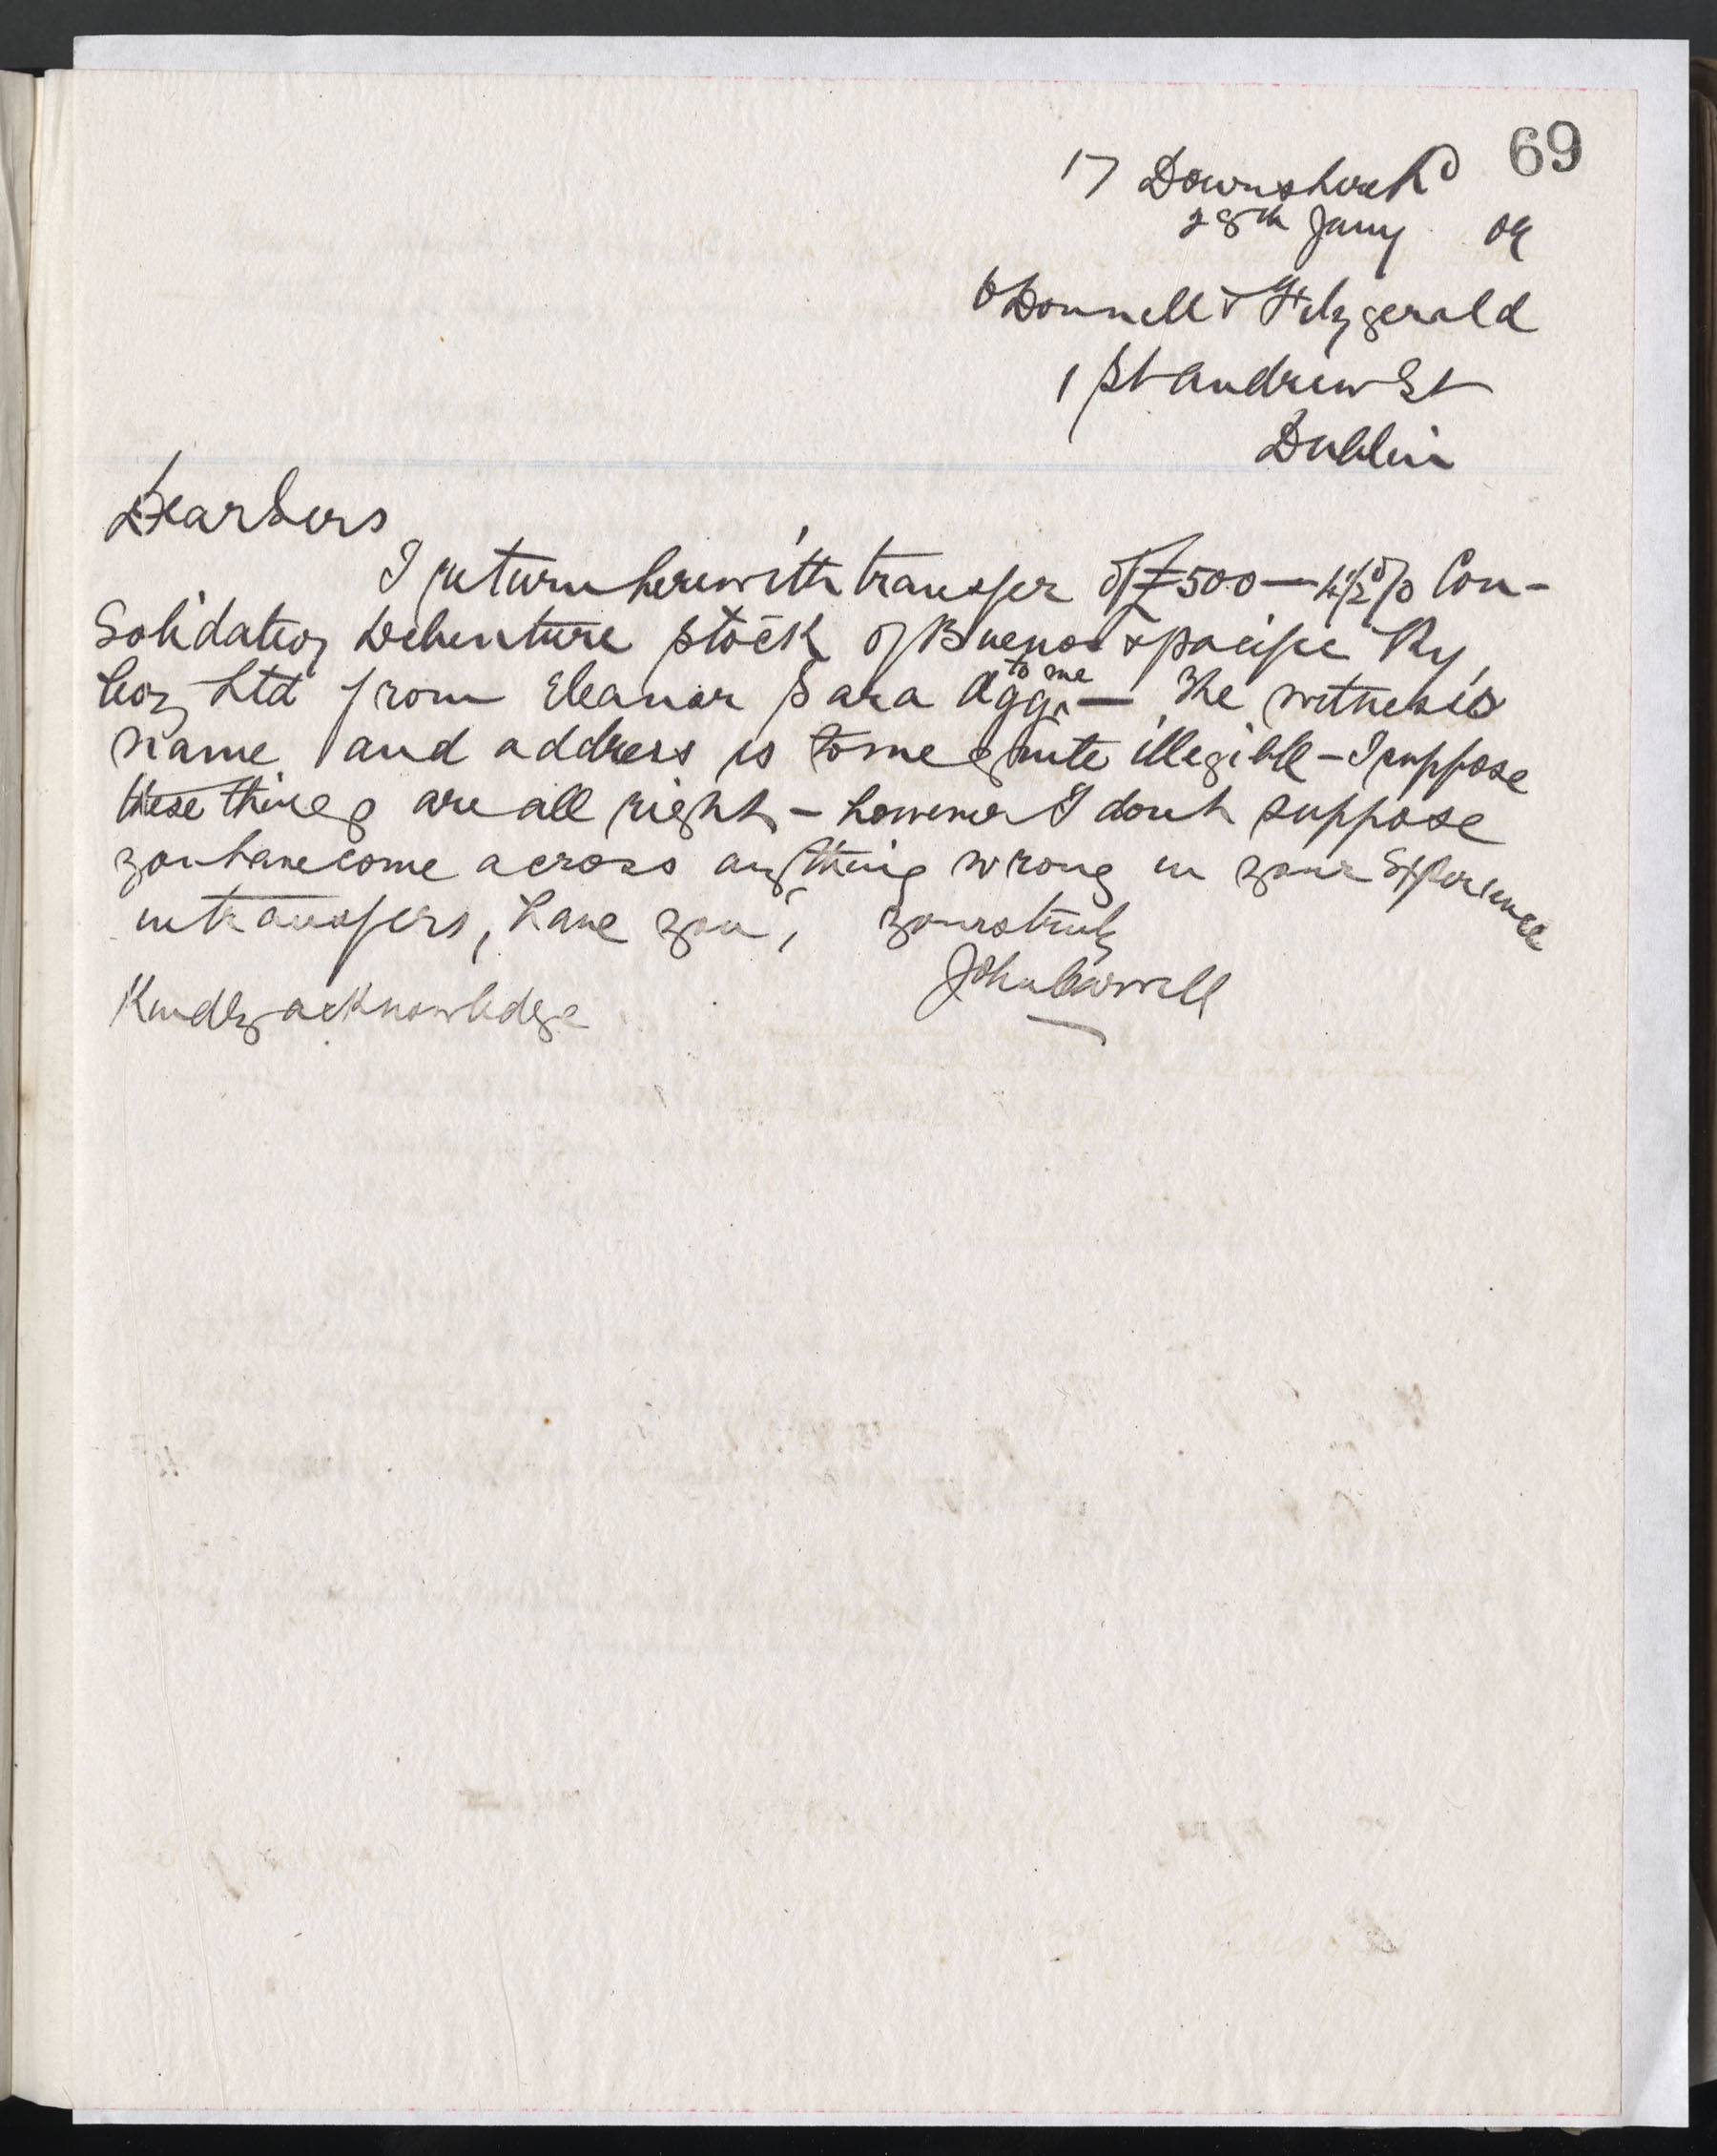 69
17 Downshire Rd
28th Jany 09
O'Donnell & Fitzgerald
1 St Andrew St
Dublin
Dear Sirs
I return herewith transfer of £500 — 4½ % Con-
solidation Debenture stock of Buenos & pacific Ry,
Coy Ltd from Eleanor Sara Agg to me — The witness's
name and address is to me quite illegible — I suppose
these things are all right — however I dont suppose
you have come across anything wrong in your Experience
in transfers, have you,
yours truly
John Carroll
Kindly acknowledge